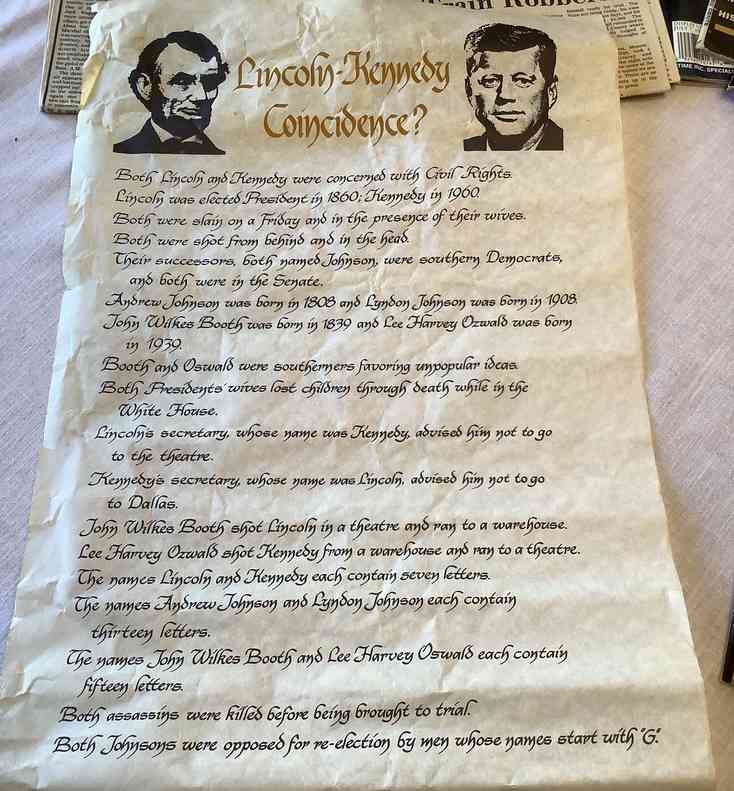 Lincoln-Kennedy
Coincidence?
Both Lincoln and Kennedy were concerned with Civil Rights.
Lincoln was elected President in 1860; Kennedy in 1960.
Both were slain on a Friday and in the presence of their wives.
Both were shot from behind and in the head.
Their successors, both named Johnson, were southern Democrats,
and both were in the Senate.
Andrew Johnson was born in 1808 and Lyndon Johnson was born in 1908.
John Wilkes Booth was born in 1839 and Lee Harvey Ozwald was born
in 1939.
Booth and Oswald were southerners favoring unpopular ideas.
Both Presidents' wives lost children through death while in the
White House.
Lincoln's secretary, whose name was Kennedy, advised him not to go
to the theatre.
Kennedy's secretary, whose name was Lincoln, advised him not to go
to Dallas.
John Wilkes Booth shot Lincoln in a theatre and ran to a warehouse.
Lee Harvey Ozwald shot Kennedy from a warehouse and ran to a theatre.
The names Lincoln and Kennedy each contain seven letters.
The names Andrew Johnson and Lyndon Johnson each contain
thirteen letters.
The names John Wilkes Booth and Lee Harvey Oswald each contain
fifteen letters.
Both assassins were killed before being brought to trial.
Both Johnsons were opposed for re-election by men whose names start with "G".
TIME INC. SPECIAL
HIS